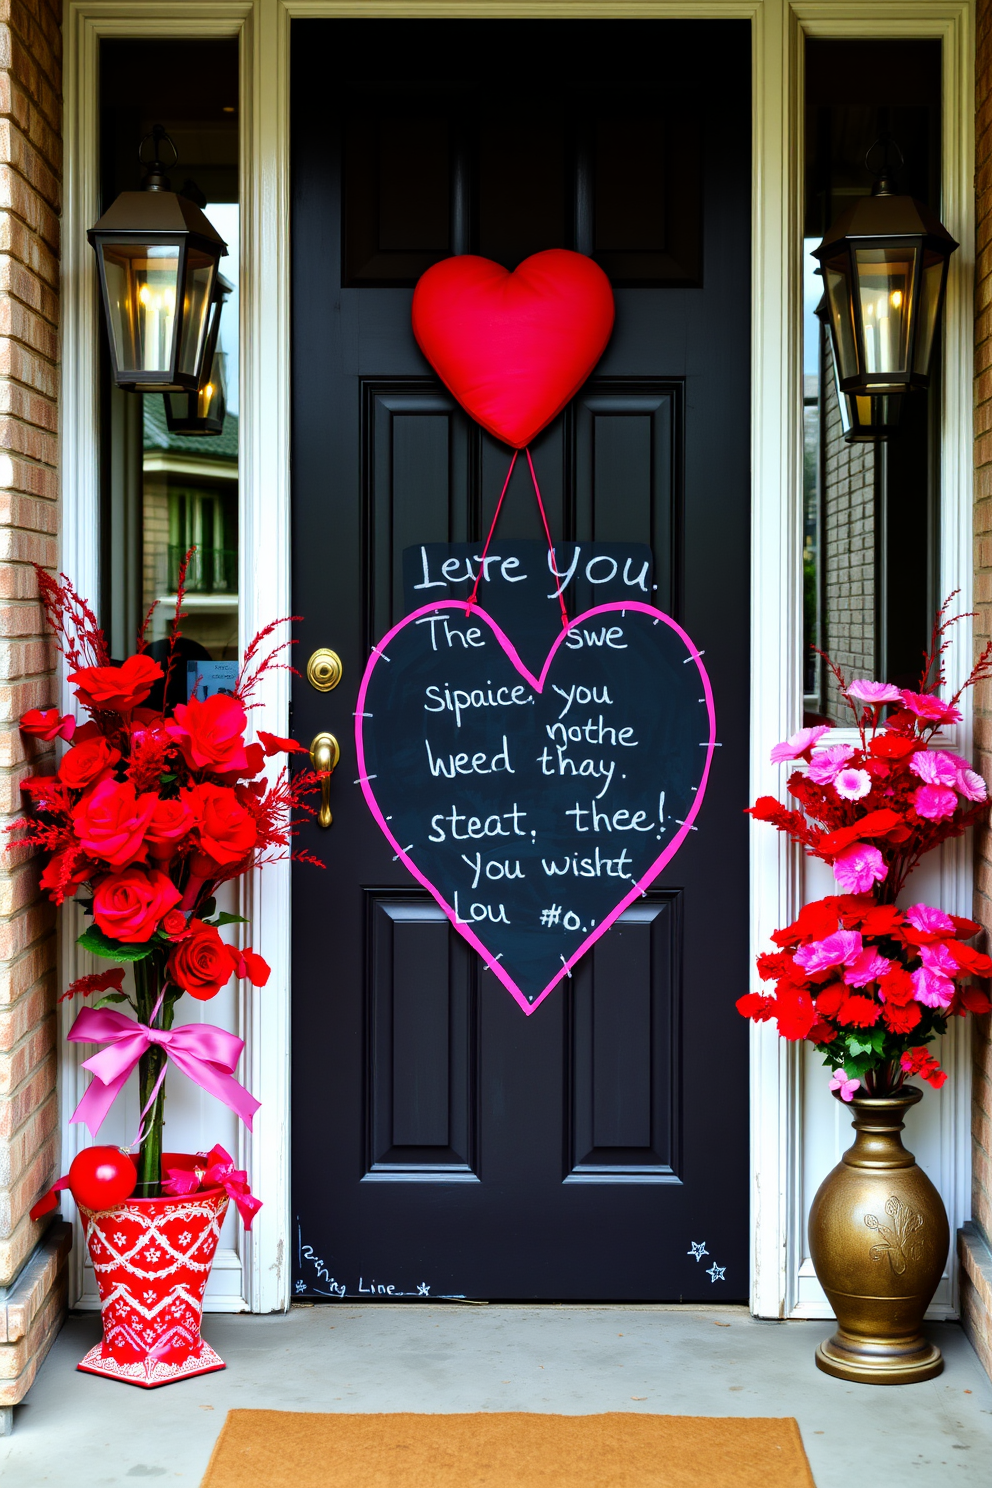 Leire You.
The swe
sipaice. you
nothe
weed thay.
steat. thee!
You wisht
Lou #o..
Line